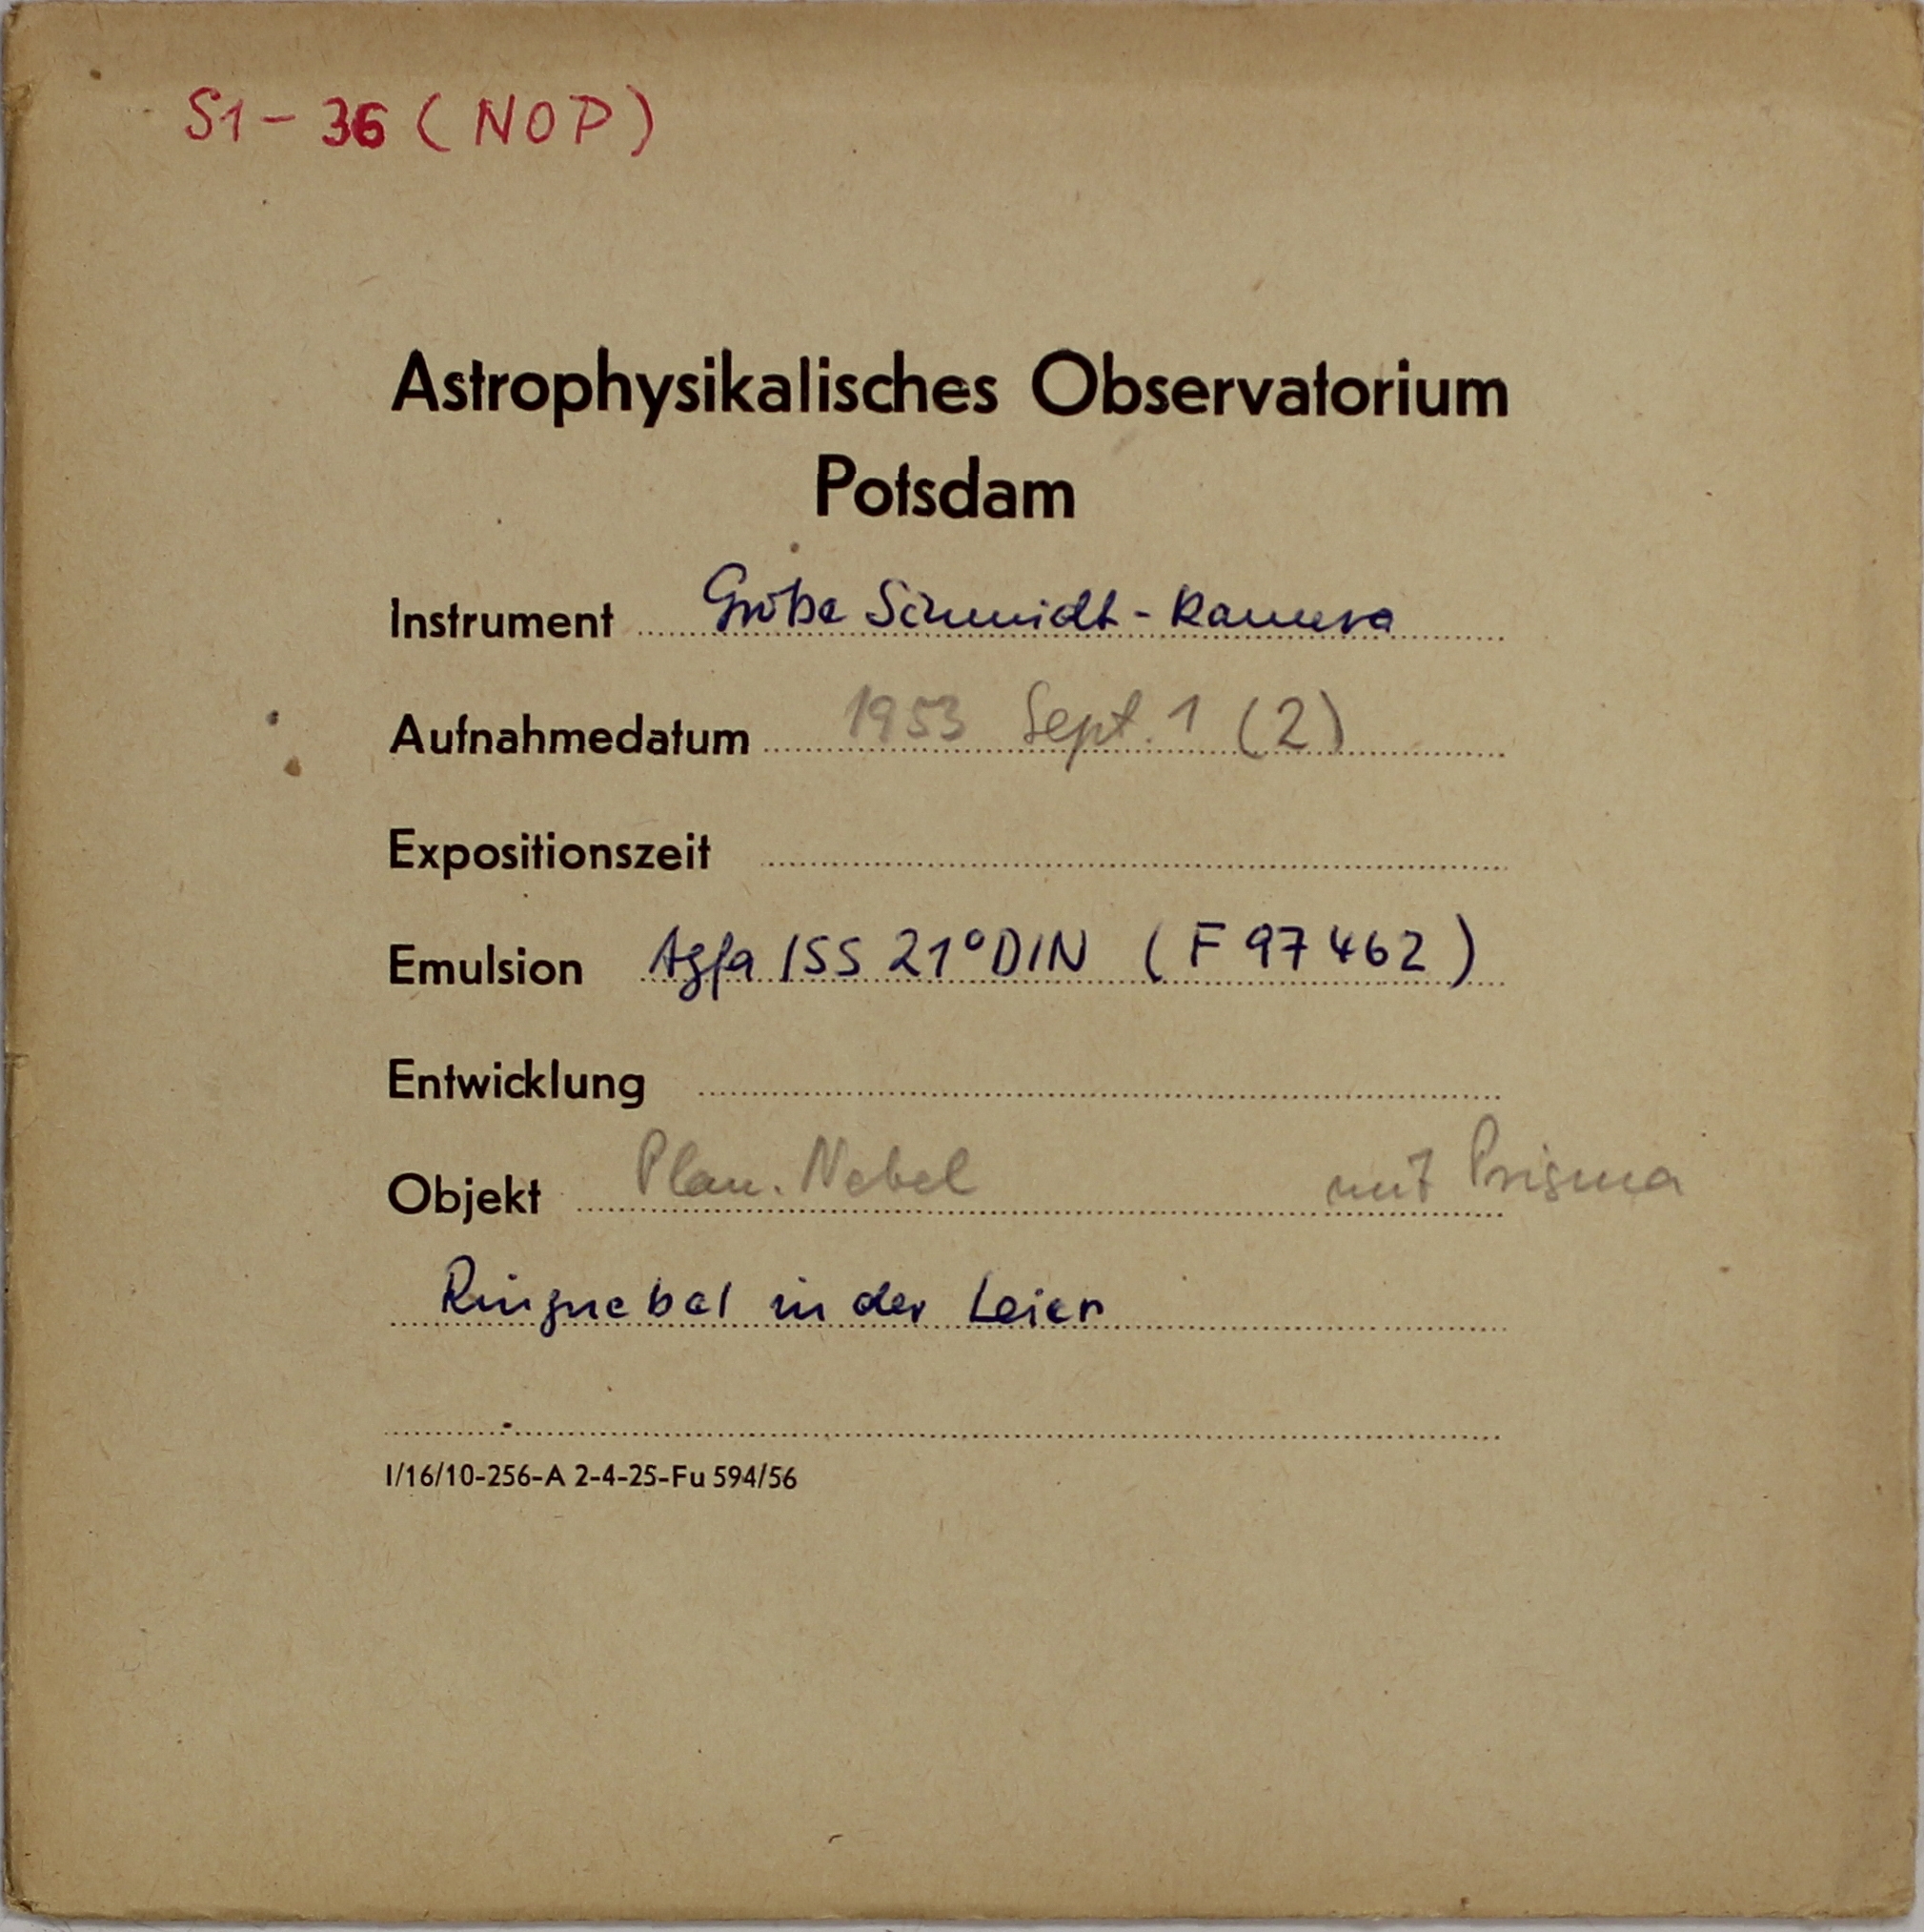 S1-36 (NOP)
Astrophysikalisches Observatorium
Potsdam
Instrument Große Schmidt-Kamera
Aufnahmedatum 1953 Sept. 1 (2)
Expositionszeit
Emulsion Agfa ISS 21° DIN (F 97462)
Entwicklung
Objekt Plan. Nebel mit Prisma
Ringnebel in der Leier
I/16/10-256-A 2-4-25-Fu 594/56